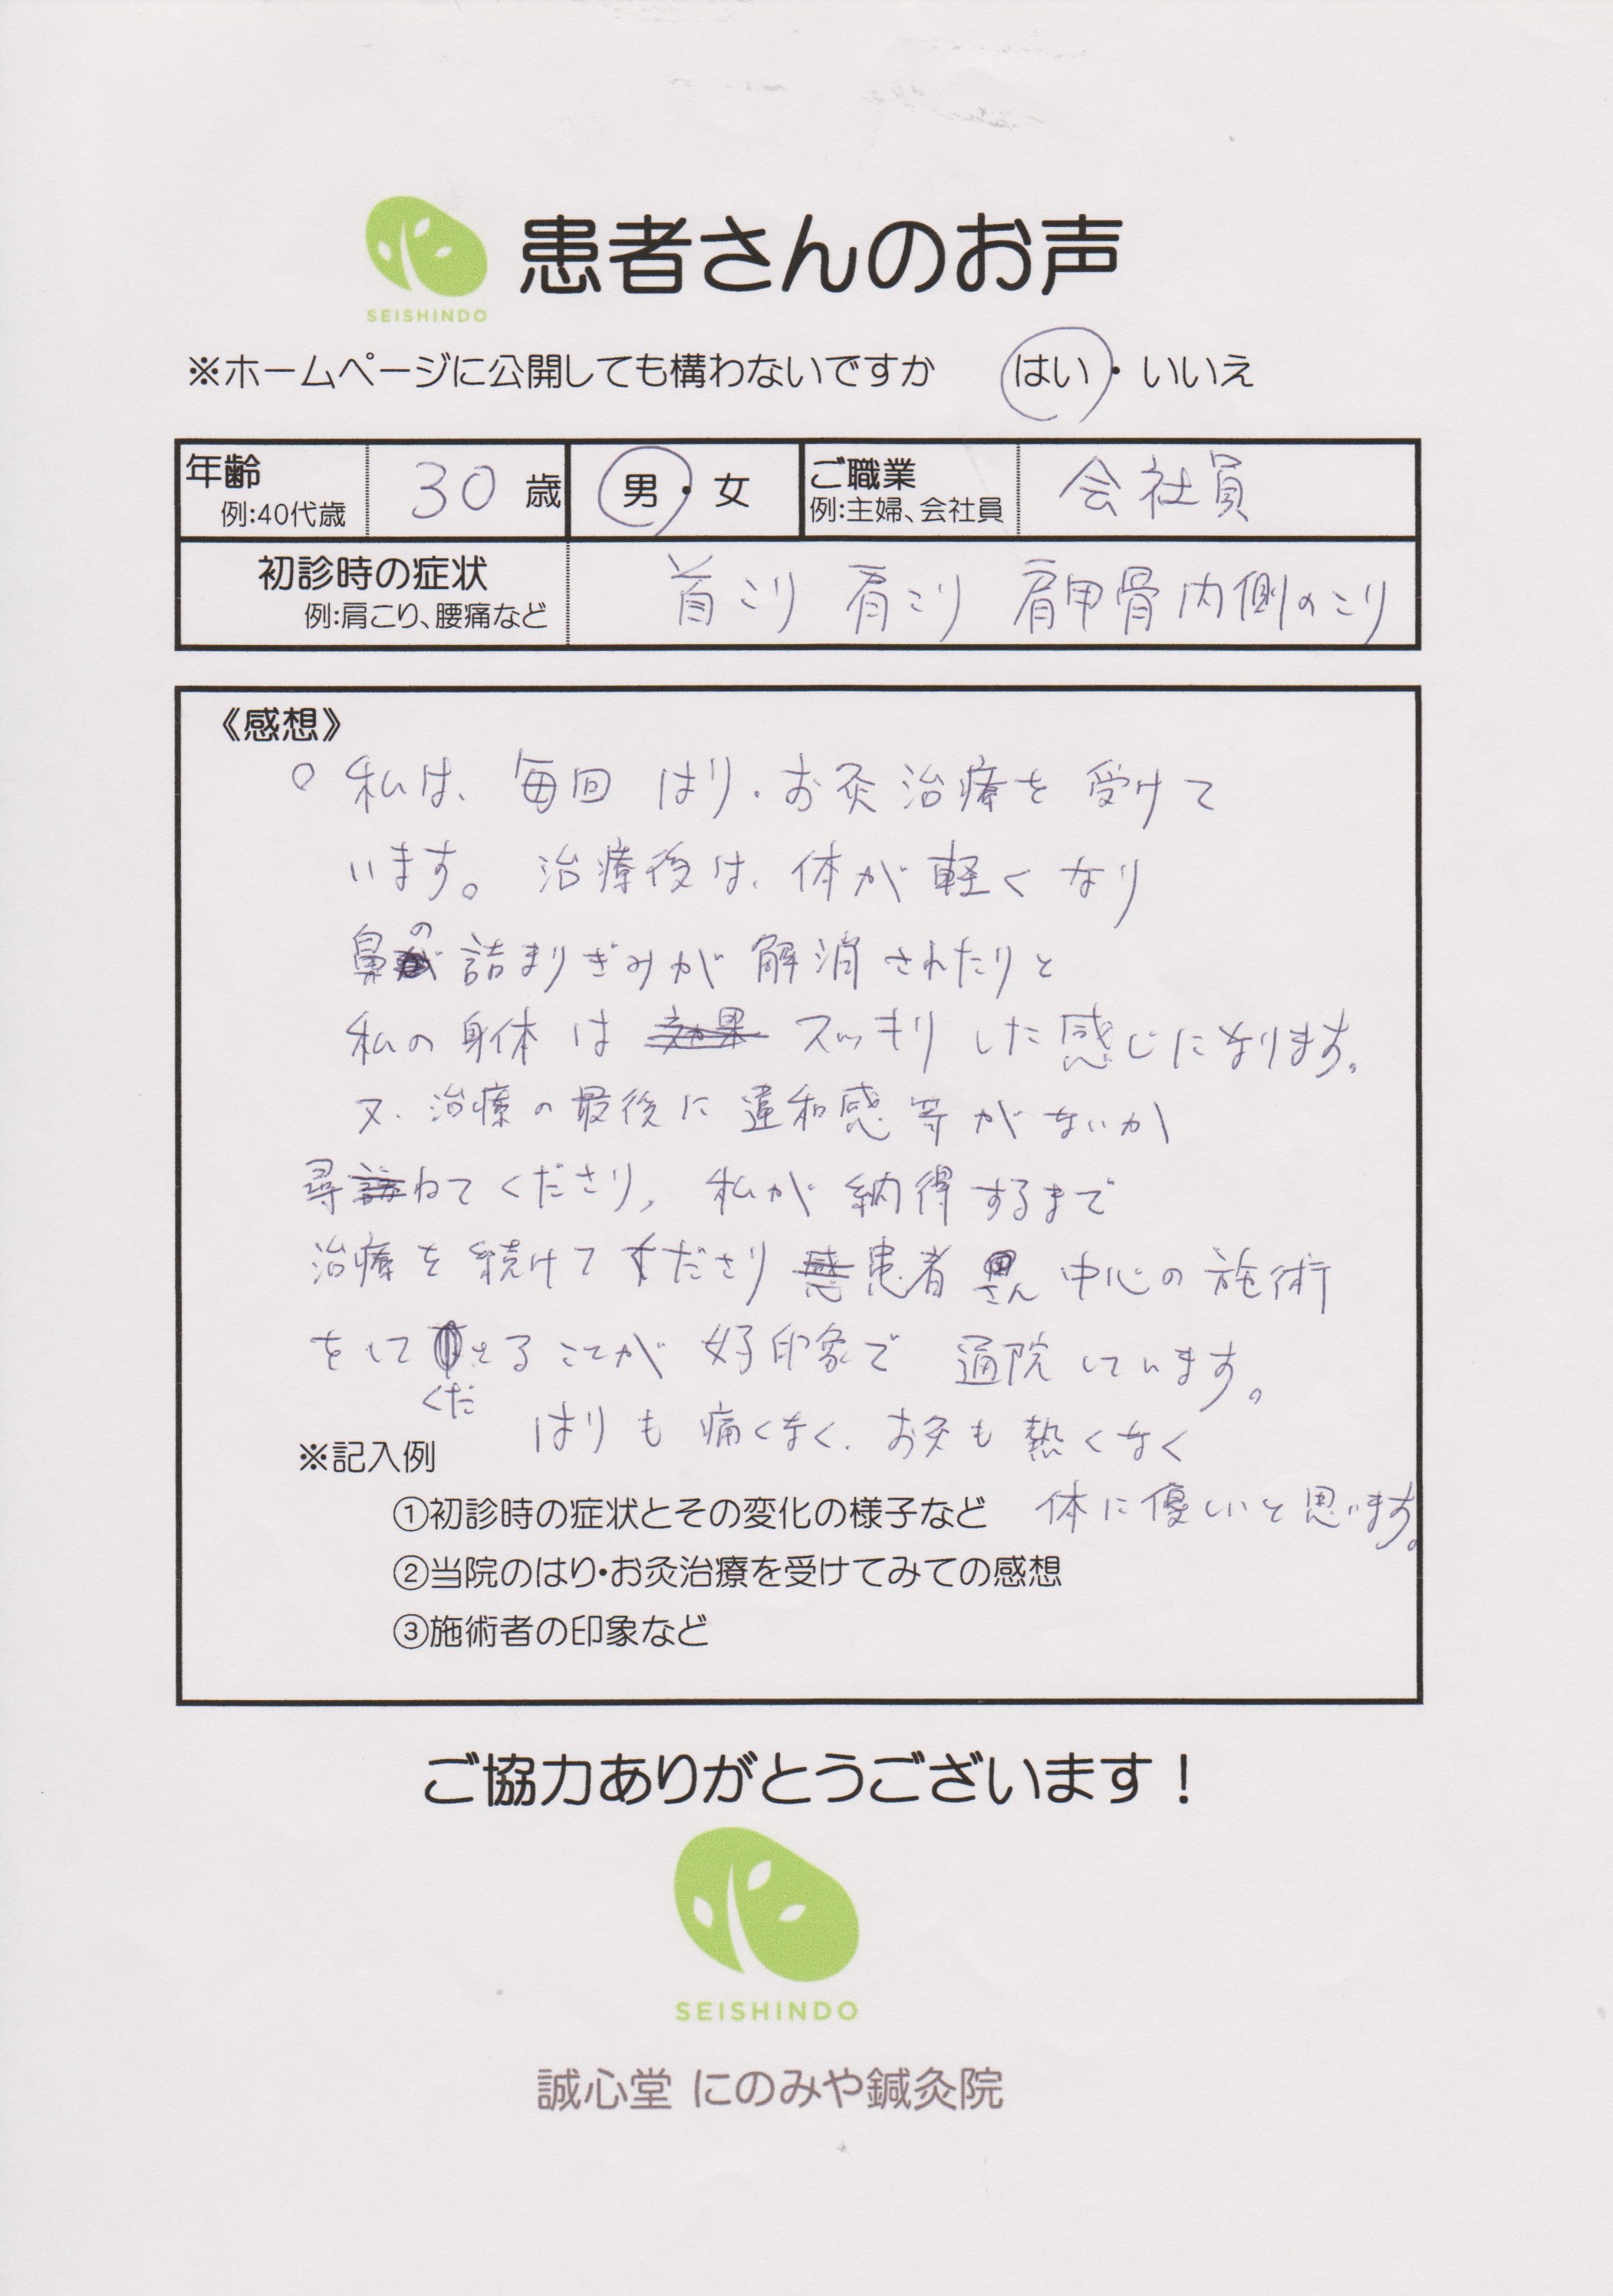 SEISHINDO
患者さんのお声
※ホームページに公開しても構わないですか はい・いいえ
年齢 30 歳 男・女 ご職業 会社員
例:40代歳 例:主婦、会社員
初診時の症状 首こり 肩こり 肩甲骨内側のこり
例:肩こり、腰痛など
《感想》
○ 私は、毎回 はり・お灸治療を受けて
います。治療後は、体が軽くなり
鼻の詰まりぎみが解消されたりと
私の身体は スッキリした感じになります。
又、治療の最後に違和感等がないか
尋ねてくださり、私が納得するまで
治療を続けてくださり 患者さん中心の施術
をしてくださることが好印象で 通院しています。
はりも痛くなく、お灸も熱くなく
体に優しいと思います。
※記入例
①初診時の症状とその変化の様子など
②当院のはり・お灸治療を受けてみての感想
③施術者の印象など
ご協力ありがとうございます！
SEISHINDO
誠心堂 にのみや鍼灸院